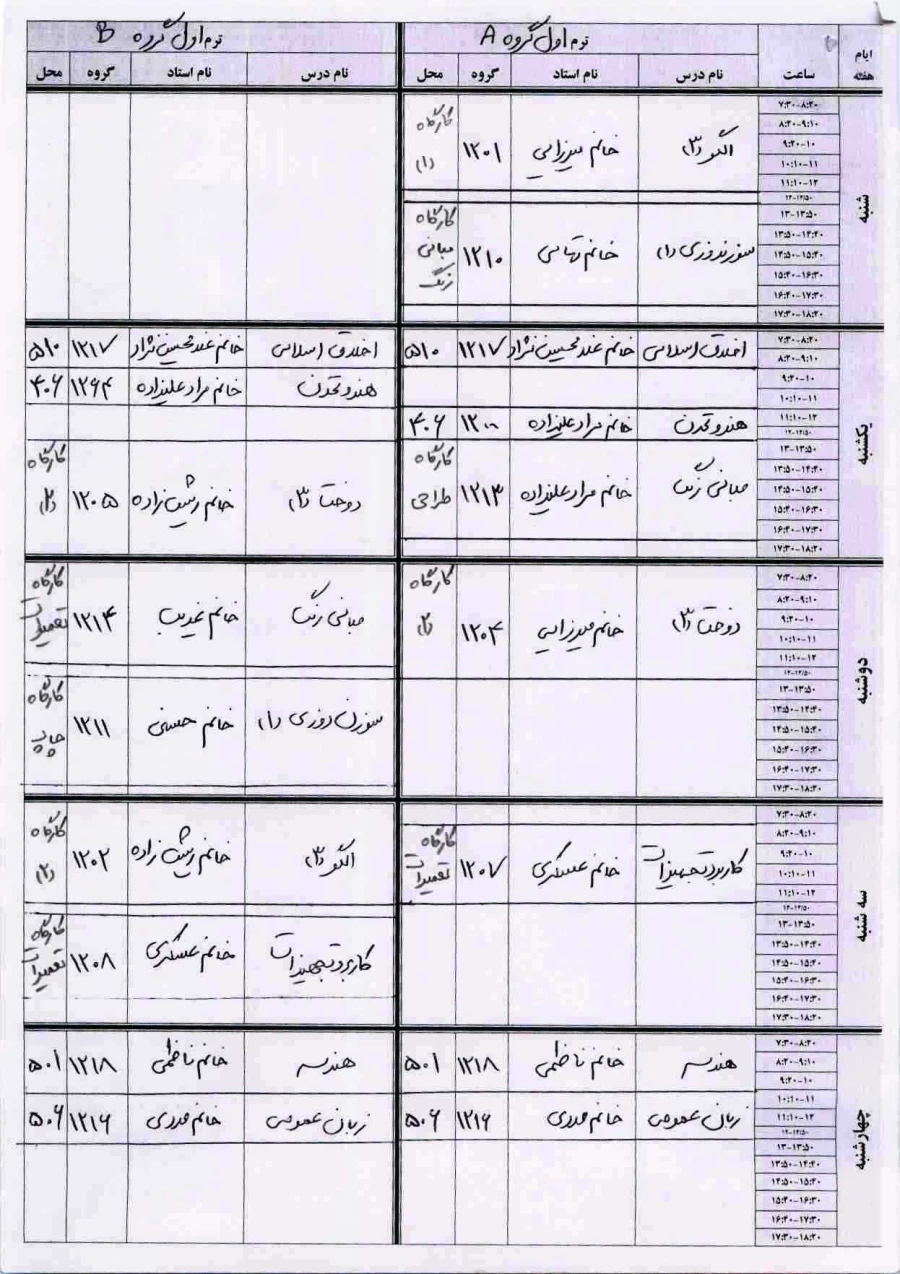 ترم اول گروه A
ترم اول گروه B
ایام هفته ساعت نام درس نام استاد گروه محل نام درس نام استاد گروه محل
شنبه
۷:۳۰-۸:۲۰
۸:۲۰-۹:۱۰
۹:۲۰-۱۰
۱۰:۱۰-۱۱
۱۱:۱۰-۱۲
۱۲-۱۲/۵۰
۱۳-۱۳:۵۰
۱۳:۵۰-۱۴:۴۰
۱۴:۵۰-۱۵:۴۰
۱۵:۴۰-۱۶:۳۰
۱۶:۴۰-۱۷:۳۰
۱۷:۳۰-۱۸:۲۰
الگو (۳) خانم میرزایی ۱۲۰۱ کارگاه (۱)
سوزندوزی (۱) خانم تهامی ۱۲۱۰ کارگاه مبانی رنگ
یکشنبه
۷:۳۰-۸:۲۰
۸:۲۰-۹:۱۰
۹:۲۰-۱۰
۱۰:۱۰-۱۱
۱۱:۱۰-۱۲
۱۲-۱۲/۵۰
۱۳-۱۳:۵۰
۱۳:۵۰-۱۴:۴۰
۱۴:۵۰-۱۵:۴۰
۱۵:۴۰-۱۶:۳۰
۱۶:۴۰-۱۷:۳۰
۱۷:۳۰-۱۸:۲۰
اخلاق اسلامی خانم ۱۲۱۷ ۵۱۰ اخلاق اسلامی خانم ۱۲۱۷ ۵۱۰
هنر و تمدن خانم مراد علیزاده ۱۲۶۴ ۴۰۶
هنر و تمدن خانم مراد علیزاده ۱۲۰۰ ۴۰۶
مبانی رنگ خانم مراد علیزاده ۱۲۱۳ کارگاه طراحی
دوخت (۳) خانم زاده ۱۲۰۵ کارگاه (۲)
دوشنبه
۷:۳۰-۸:۲۰
۸:۲۰-۹:۱۰
۹:۲۰-۱۰
۱۰:۱۰-۱۱
۱۱:۱۰-۱۲
۱۲-۱۲/۵۰
۱۳-۱۳:۵۰
۱۳:۵۰-۱۴:۴۰
۱۴:۵۰-۱۵:۴۰
۱۵:۴۰-۱۶:۳۰
۱۶:۴۰-۱۷:۳۰
۱۷:۳۰-۱۸:۲۰
دوخت (۳) خانم میرزایی ۱۲۰۴ کارگاه (۲)
مبانی رنگ خانم غریب ۱۲۱۴ کارگاه تعمیرات
سوزن دوزی (۱) خانم حسنی ۱۲۱۱ کارگاه چاپ
سه شنبه
۷:۳۰-۸:۲۰
۸:۲۰-۹:۱۰
۹:۲۰-۱۰
۱۰:۱۰-۱۱
۱۱:۱۰-۱۲
۱۲-۱۲/۵۰
۱۳-۱۳:۵۰
۱۳:۵۰-۱۴:۴۰
۱۴:۵۰-۱۵:۴۰
۱۵:۴۰-۱۶:۳۰
۱۶:۴۰-۱۷:۳۰
۱۷:۳۰-۱۸:۲۰
کاربرد تجهیزات خانم عسکری ۱۲۰۷ کارگاه تعمیرات
الگو (۳) خانم زاده ۱۲۰۲ کارگاه (۲)
کاربرد تجهیزات خانم عسکری ۱۲۰۸ کارگاه تعمیرات
چهارشنبه
۷:۳۰-۸:۲۰
۸:۲۰-۹:۱۰
۹:۲۰-۱۰
۱۰:۱۰-۱۱
۱۱:۱۰-۱۲
۱۲-۱۲/۵۰
۱۳-۱۳:۵۰
۱۳:۵۰-۱۴:۴۰
۱۴:۵۰-۱۵:۴۰
۱۵:۴۰-۱۶:۳۰
۱۶:۴۰-۱۷:۳۰
۱۷:۳۰-۱۸:۲۰
هندسه خانم ناظمی ۱۲۱۸ ۵۰۱ هندسه خانم ناظمی ۱۲۱۸ ۵۰۱
زبان عمومی خانم ۱۲۱۶ ۵۰۶ زبان عمومی خانم ۱۲۱۶ ۵۰۶